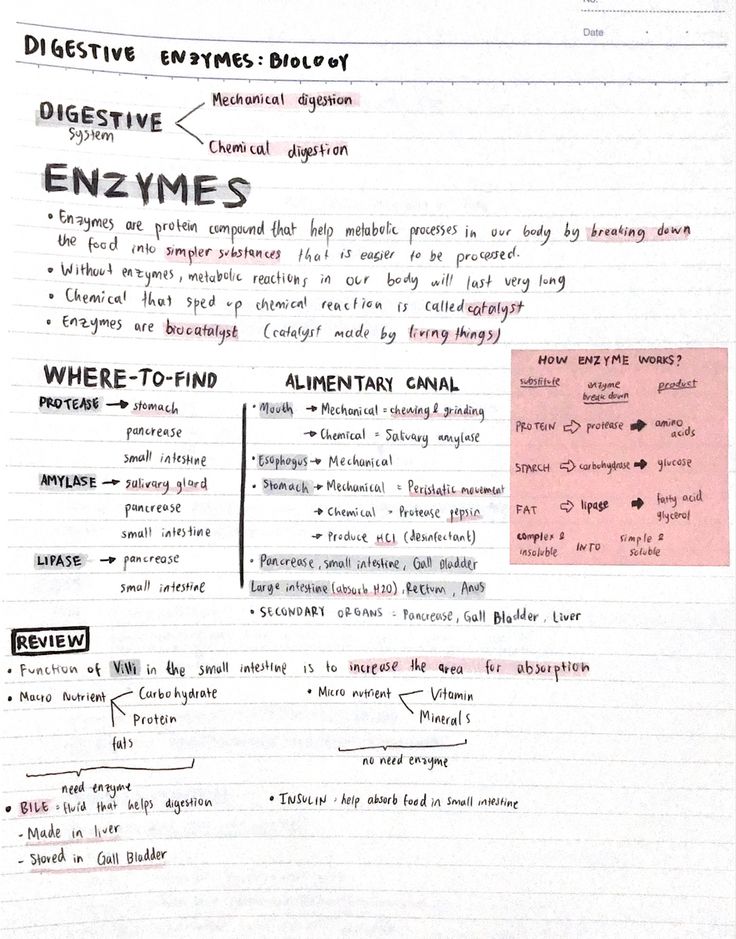 No.
Date
DIGESTIVE ENZYMES: BIOLOGY
DIGESTIVE
system
Mechanical digestion
Chemical digestion
ENZYMES
• Enzymes are protein compound that help metabolic processes in our body by breaking down
the food into simpler substances that is easier to be processed.
• Without enzymes, metabolic reactions in our body will last very long
• Chemical that sped up chemical reaction is called catalyst
• Enzymes are biocatalyst (catalyst made by living things)
WHERE-TO-FIND
PROTEASE → stomach
pancrease
small intestine
AMYLASE → salivary gland
pancrease
small intestine
LIPASE → pancrease
small intestine
ALIMENTARY CANAL
• Mouth → Mechanical = chewing & grinding
→ Chemical = Salivary amylase
• Esophogus → Mechanical
• Stomach → Mechanical = Peristatic movement
→ Chemical = Protease pepsin
→ Produce HCl (desinfectant)
• Pancrease, small intestine, Gall Bladder
Large intestine (absorb H2O), Rectum, Anus
• SECONDARY ORGANS = Pancrease, Gall Bladder, Liver
HOW ENZYME WORKS?
substitute enzyme break down product
PROTEIN ⇨ protease → amino acids
STARCH ⇨ carbohydrase → glucose
FAT ⇨ lipase → fatty acid glycerol
complex & insoluble INTO simple & soluble
REVIEW
• Function of Villi in the small intestine is to increase the area for absorption
• Macro Nutrient
Carbohydrate
Protein
fats
need enzyme
• Micro nutrient
Vitamin
Minerals
no need enzyme
• BILE = fluid that helps digestion
- Made in liver
- Stored in Gall Bladder
• INSULIN = help absorb food in small intestine